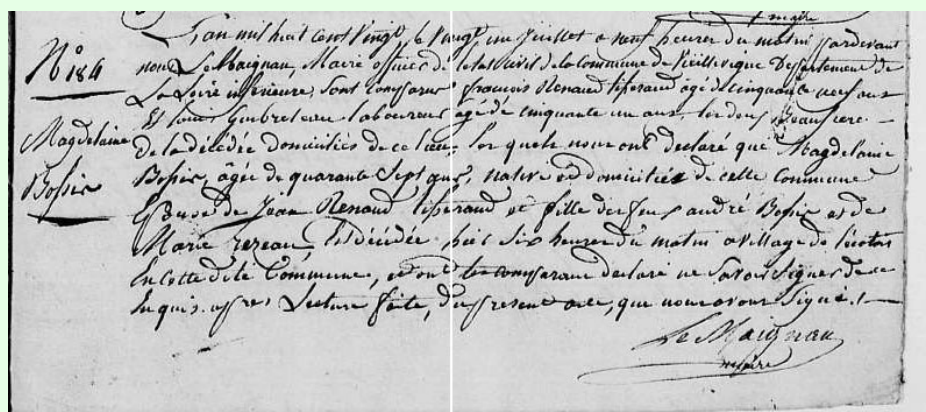 maire
L'an mil huit cent vingt, le vingt un Juillet a neuf heures du matin pardevant
N° 184
nous Le Maignan, Maire officier de l'etat civil de la commune de Vieillevigne Departement de
La Loire inferieure, sont comparus françois Renaud tisserand agé de cinquante neuf ans
Et Louis Gaubreteau laboureur agé de cinquante un ans, les deux Beaufrere
Magdelaine
de la décédée domiciliés de ce lieu, lesquels nous ont declaré que Magdelaine
Bossis
Bossis, âgée de quarante Sept ans, native et domiciliée de cette Commune
Epouse de Jean Renaud tisserand et fille des feus andré Bossis et de
Marie rezeau, Est décédée hier six heures du matin a village de
En cette dite Commune, et ont les comparans declaré ne Savoir Signer de ce
Enquis. après Lecture faite, du present acte, que nous avons Signé./.
Le Maignan
maire